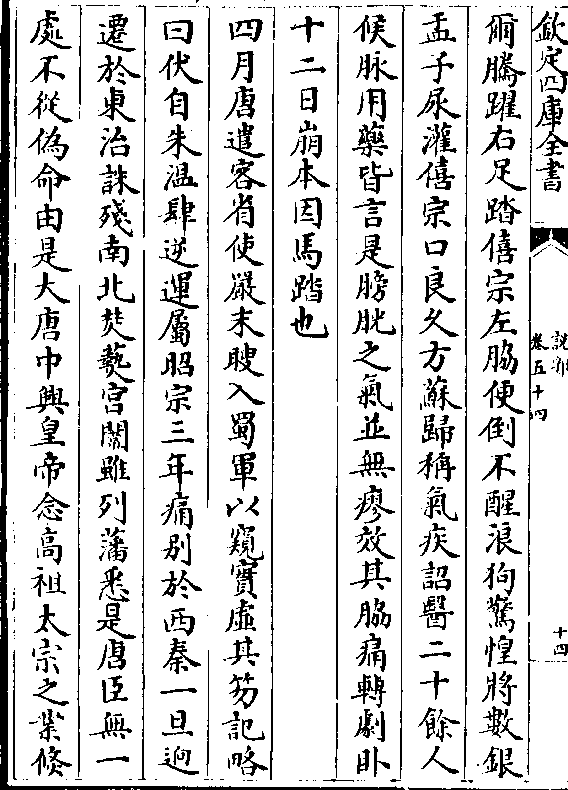 欽定四庫全書
說郛
卷五十四
十四
爾騰躍右足踏僖宗左脇便倒不醒浪狗驚惶將數銀
盂子尿灌僖宗口良久方蘇歸稱氣疾詔醫二十餘人
候脉用藥皆言是膀胱之氣並無瘳效其脇痛轉劇卧
十二日崩本因馬踏也
四月唐遣客省使嚴末朡入蜀軍以窺實虛其笏記略
曰伏自朱溫肆逆運屬昭宗三年痛別於西秦一旦迫
遷於東洛誅殘南北焚爇宮闕雖列藩悉是唐臣無一
處不從偽命由是大唐中興皇帝念高祖太宗之業倐